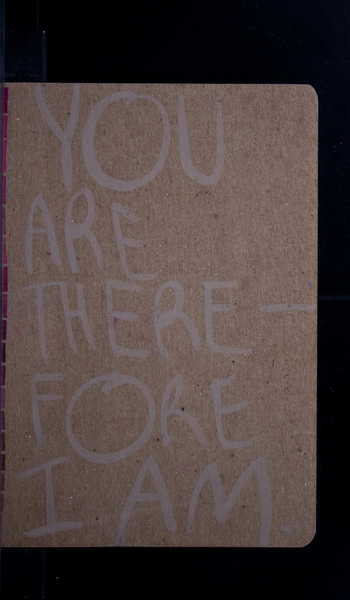 YOU
ARE
THERE-
FORE
I AM.